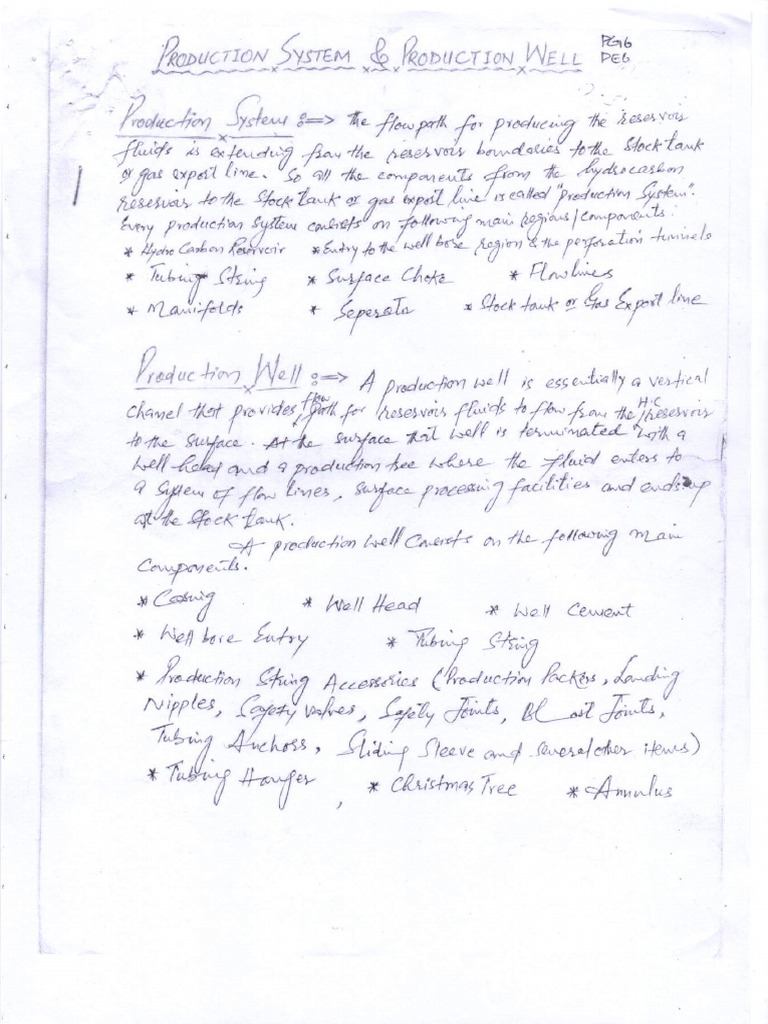 PRODUCTION SYSTEM & PRODUCTION WELL
PG16
DE6
Production System :=> the flow path for producing the reservoir
fluids is extending from the reservoir boundaries to the stock tank
or gas export line. So all the components from the hydrocarbon
reservoir to the stock tank or gas export line is called "production System".
Every production system consists on following main regions/components:
* Hydro Carbon Reservoir * Entry to the well bore region & the perforation tunnels
* Tubing String * Surface Choke * Flowlines
* Manifolds * Seperator * Stock tank or Gas Export line
Production Well :=> A production well is essentially a vertical
chanel that provides flow path for reservoir fluids to flow from the H.C reservoir
to the surface. At the surface that well is terminated with a
well head and a production tree where the fluid enters to
a system of flow lines, surface processing facilities and ends up
at the stock tank.
A production well consists on the following main
components.
* Casing * Well Head * Well Cement
* Well bore Entry * Tubing String
* Production String Accessories (Production Packers, Landing
Nipples, Safety valves, Safety Joints, Blast Joints,
Tubing Anchors, Sliding Sleeve and several other items)
* Tubing Hanger * Christmas Tree * Annulus